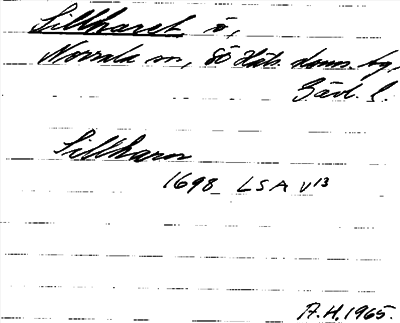 Sillharet ö,
Norrala sn, SÖ Häls. doms. bg,
Gävl. l.
Sillharn
1698 LSA V13
A.H. 1965.